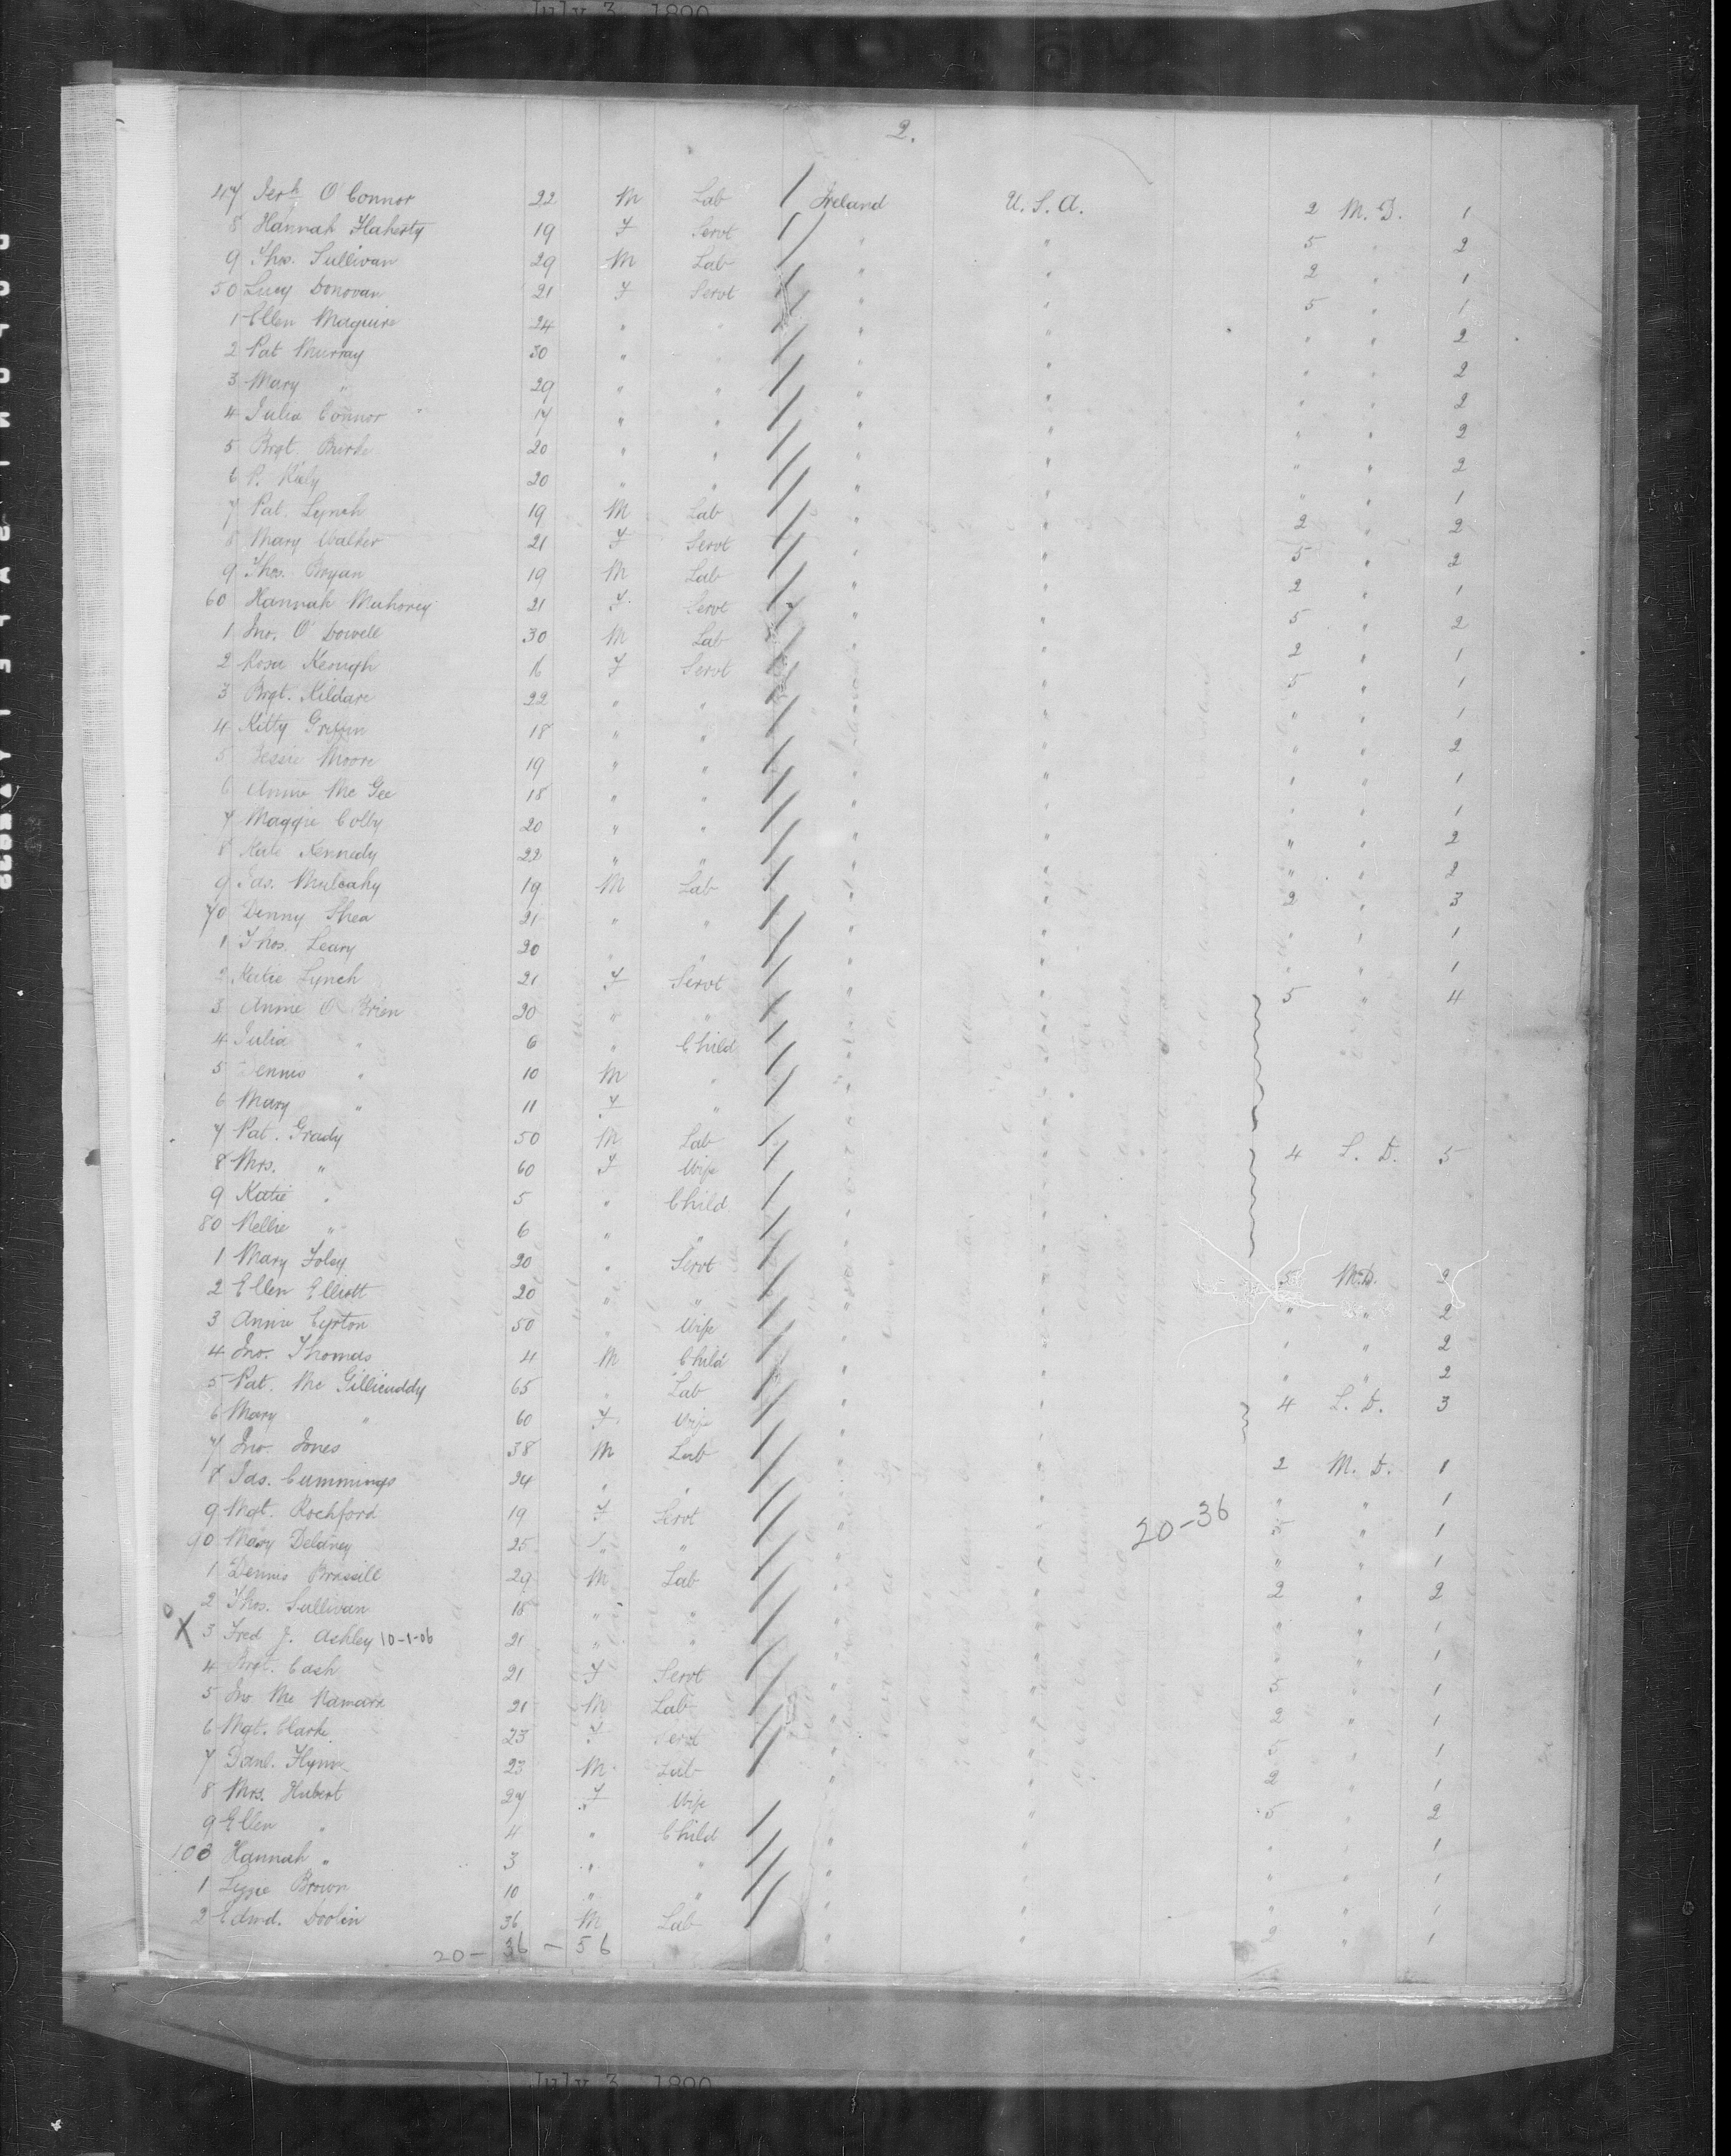 July 3, 1890
2.
47 Jerh O'Connor 22 M Lab Ireland U.S.A. 2 M.D. 1
8 Hannah Flaherty 19 F Servt " " 5 " 2
9 Thos. Sullivan 29 M Lab " " 2 " 1
50 Lucy Donovan 21 F Servt " " 5 " 1
1 Ellen Maguire 24 " " " " " " 2
2 Pat Murray 30 " " " " " " 2
3 Mary " 29 " " " " " " 2
4 Julia Connor 17 " " " " " " 2
5 Brgt. Burke 20 " " " " " " 2
6 P. 20 " " " " " " 1
7 Pat. Lynch 19 M Lab " " 2 " 2
8 Mary Walker 21 F Servt " " 5 " 2
9 Thos. Bryan 19 M Lab " " 2 " 1
60 Hannah Mahoney 21 F Servt " " 5 " 2
1 Jno. O'Dowell 30 M Lab " " 2 " 1
2 Rosa Keough 16 F Servt " " 5 " 1
3 Brgt. Kildare 22 " " " " " " 1
4 Kitty Griffin 18 " " " " " " 2
5 Bessie Moore 19 " " " " " " 1
6 Annie Mc Gee 18 " " " " " " 1
7 Maggie Colby 20 " " " " " " 2
8 Kate Kennedy 22 " " " " " " 2
9 Jas. Mulcahy 19 M Lab " " 2 " 3
70 Denny Shea 21 " " " " " " 1
1 Thos. Leary 20 " " " " " " 1
2 Katie Lynch 21 F Servt " " 5 " 4
3 Annie O'Brien 20 " " " "
4 Julia " 6 " Child " "
5 Dennis " 10 M " " "
6 Mary " 11 F " " "
7 Pat. Grady 50 M Lab " " 4 L.D. 5
8 Mrs. " 60 F Wife " "
9 Katie " 5 " Child " "
80 Nellie " 6 " " " "
1 Mary Foley 20 " Servt " " 5 M.D. 2
2 Ellen Elliott 20 " " " " " " 2
3 Annie Cyrton 50 " Wife " " " " 2
4 Jno. Thomas 4 M Child " " " " 2
5 Pat. Mc Gillicuddy 65 " Lab " " 4 L.D. 3
6 Mary " 60 F Wife " "
7 Jno. Jones 38 M Lab " " 2 M.D. 1
8 Jas. Cummings 24 " " " " " " 1
9 Mgt. Rochford 19 F Servt " " 20-36 5 " 1
90 Mary Delaney 25 " " " " " " 1
1 Dennis Brassill 29 M Lab " " 2 " 2
2 Thos. Sullivan 18 " " " " " " 1
X 3 Fred J. Ashley 10-1-06 21 " " " " " " 1
4 Brgt. Cash 21 F Servt " " 5 " 1
5 Jno Mc Namara 21 M Lab " " 2 " 1
6 Mgt. Clarke 23 F Servt " " 5 " 1
7 Danl. Flynn 23 M Lab " " 2 " 1
8 Mrs. Hubert 27 F Wife " " 5 " 2
9 Ellen " 4 " Child " " " " 1
100 Hannah " 3 " " " " " " 1
1 Brown 10 " " " " " " 1
2 Edwd. Doolin 36 M Lab " " 2 " 1
20 - 36 - 56
July 3, 1890